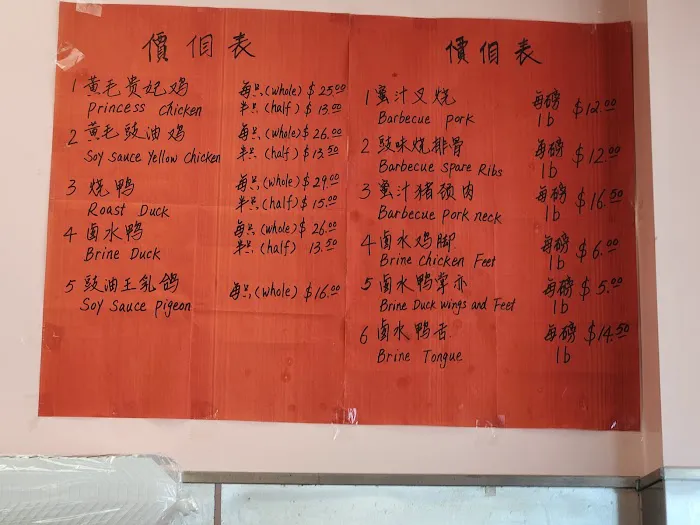 價佀表
1 黄毛贵妃鸡 每只(whole) $25.00
Princess chicken 半只(half) $13.00
2 黄毛豉油鸡 每只(whole) $26.00
Soy sauce Yellow chicken 半只(half) $13.50
3 烧鸭 每只(whole) $29.00
Roast Duck 半只(half) $15.00
4 卤水鸭 每只(whole) $26.00
Brine Duck 半只(half) 13.50
5 豉油王乳鸽 每只(whole) $16.00
Soy Sauce pigeon
價佀表
1 蜜汁叉烧 每磅 $12.00
Barbecue pork 1b
2 豉味烧排骨 每磅 $12.00
Barbecue spare Ribs 1b
3 蜜汁猪颈肉 每磅 $16.50
Barbecue pork neck 1b
4 卤水鸡脚 每磅 $6.00
Brine chicken Feet 1b
5 卤水鸭掌亦 每磅 $5.00
Brine Duck wings and Feet 1b
6 卤水鸭舌 每磅 $14.50
Brine Tongue 1b